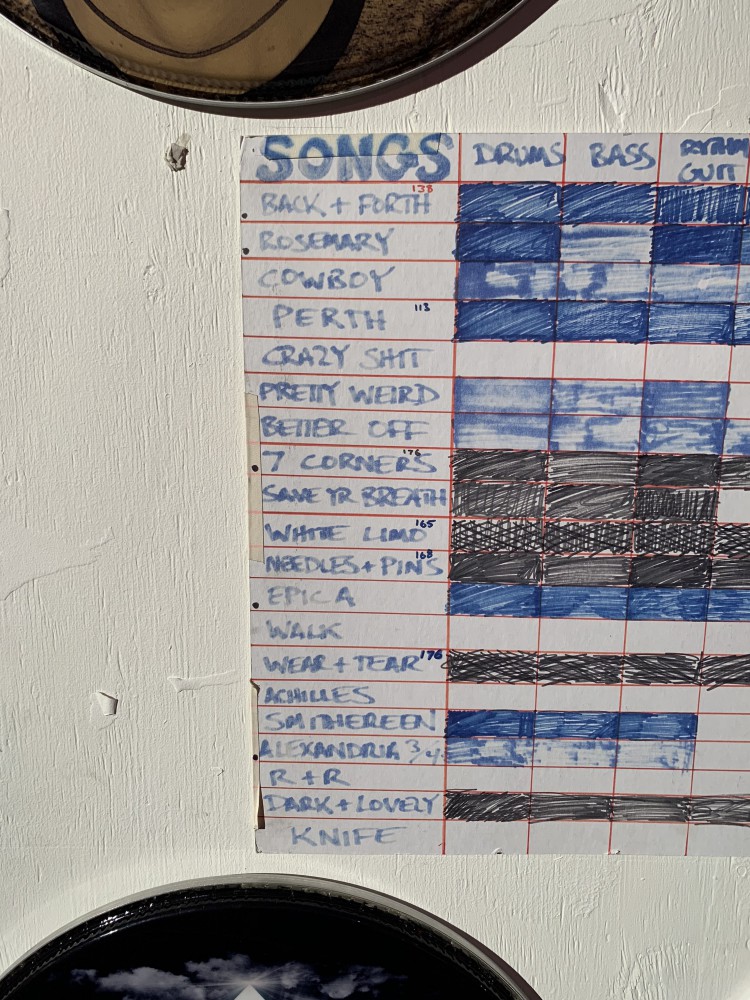 SONGS DRUMS BASS RYTHM
GUIT
BACK + FORTH 138
ROSEMARY
COWBOY
PERTH 113
CRAZY SHIT
PRETTY WEIRD
BETTER OFF
7 CORNERS 176
SAVE YR BREATH
WHITE LIMO 165
NEEDLES + PINS 168
EPICA
WALK
WEAR + TEAR 176
ACHILLES
SMITHEREEN
ALEXANDRIA 3/4
R + R
DARK + LOVELY
KNIFE